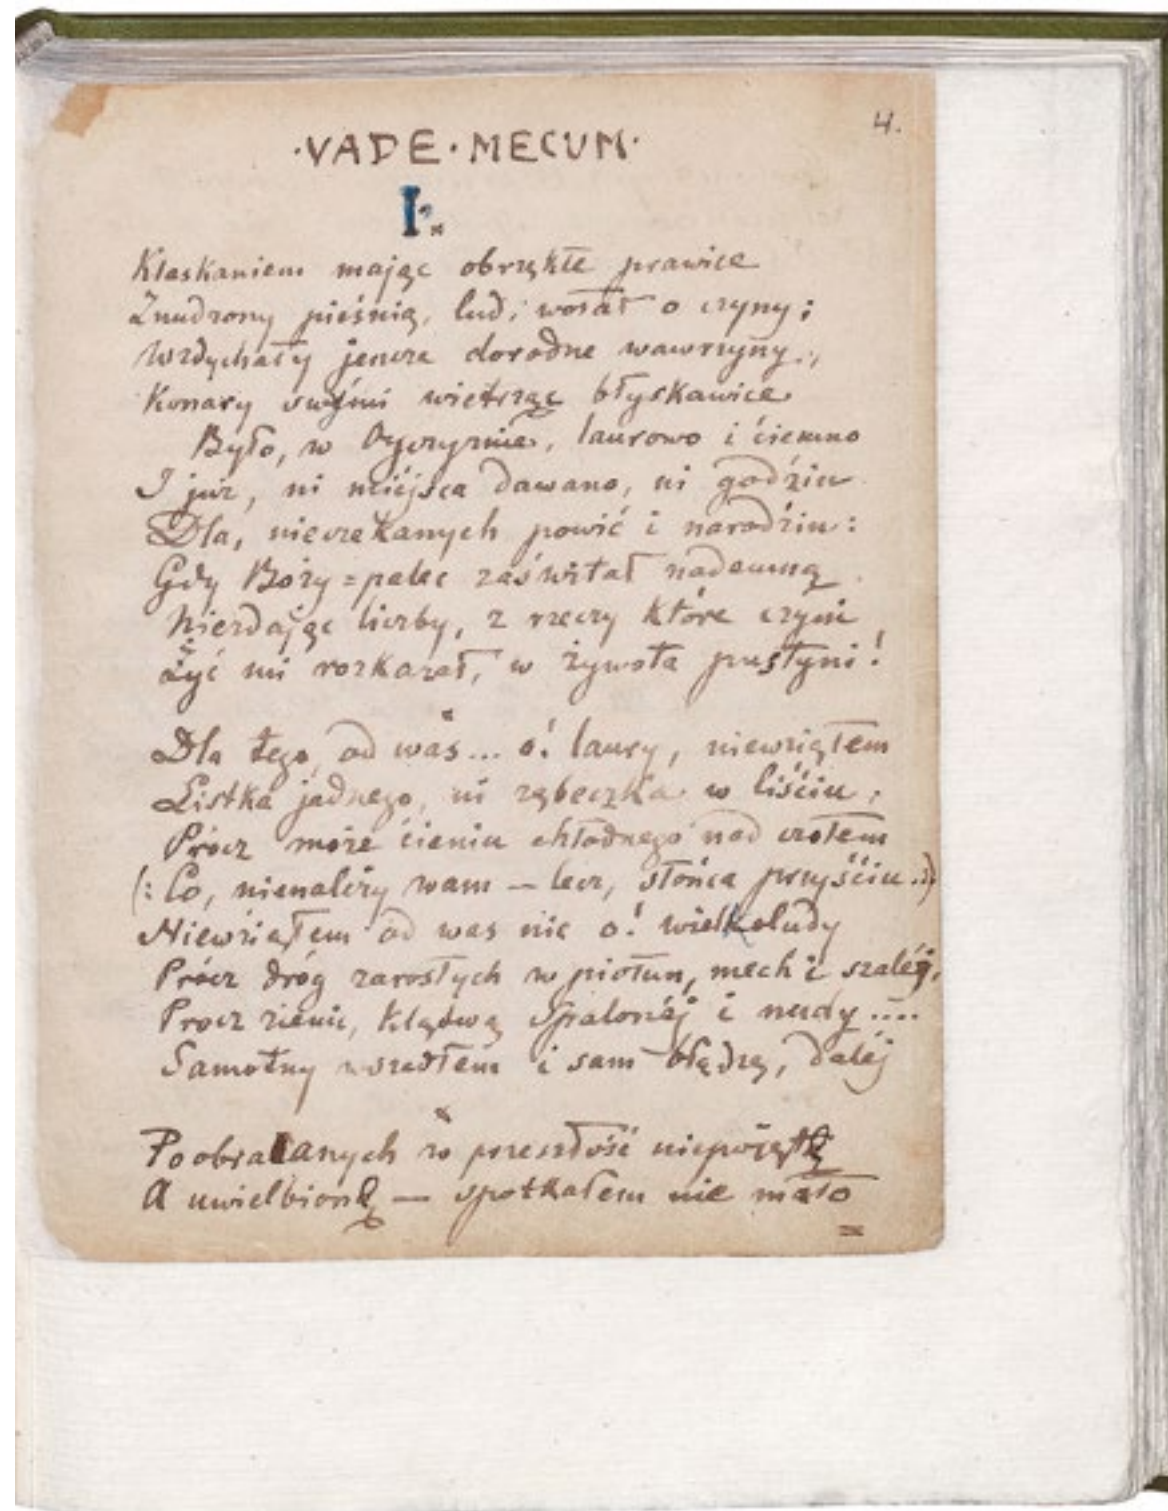 4.
·VADE·MECUM·
I.
Klaskaniem mając obrzękłe prawice
Znudzony pieśnią, lud, wołał o czyny;
Wzdychały jeszcze dorodne wawrzyny.,
Konary swymi wietrząc błyskawice.
Było, w Ojczyznie, laurowo i ćiemno
I już, ni miéjsca dawano, ni godzin
Dla, nieczekanych powić i narodzin:
Gdy Boży=palec zaświtał nademną
Niezdając liczby, z rzeczy które czyni
Żyć mi rozkazał, w żywota pustyni!
Dla tego, od was... o! laury, niewziąłem
Listka jednego, ni ząbeczka w liściu;
Prócz może cieniu chłodnego nad czołem
(: Co, nienależy wam — lecz, słońca przyściu..:)
Niewziąłem od was nic o! wielkoludy
Prócz dróg zarosłych w piołun, mech i szaléj,
Prócz ziemi, klątwą spalonéj i nudy....
Samotny wszedłem i sam błądzę, daléj
Poobracanych w przeszłość niepojętą
A uwielbioną — spotkałem nie mało
=